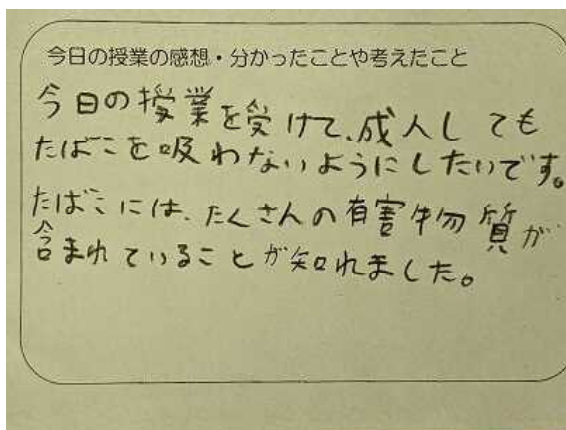 今日の授業の感想・分かったことや考えたこと
今日の授業を受けて、成人しても
たばこを吸わないようにしたいです。
たばこには、たくさんの有害物質が
含まれていることが知れました。